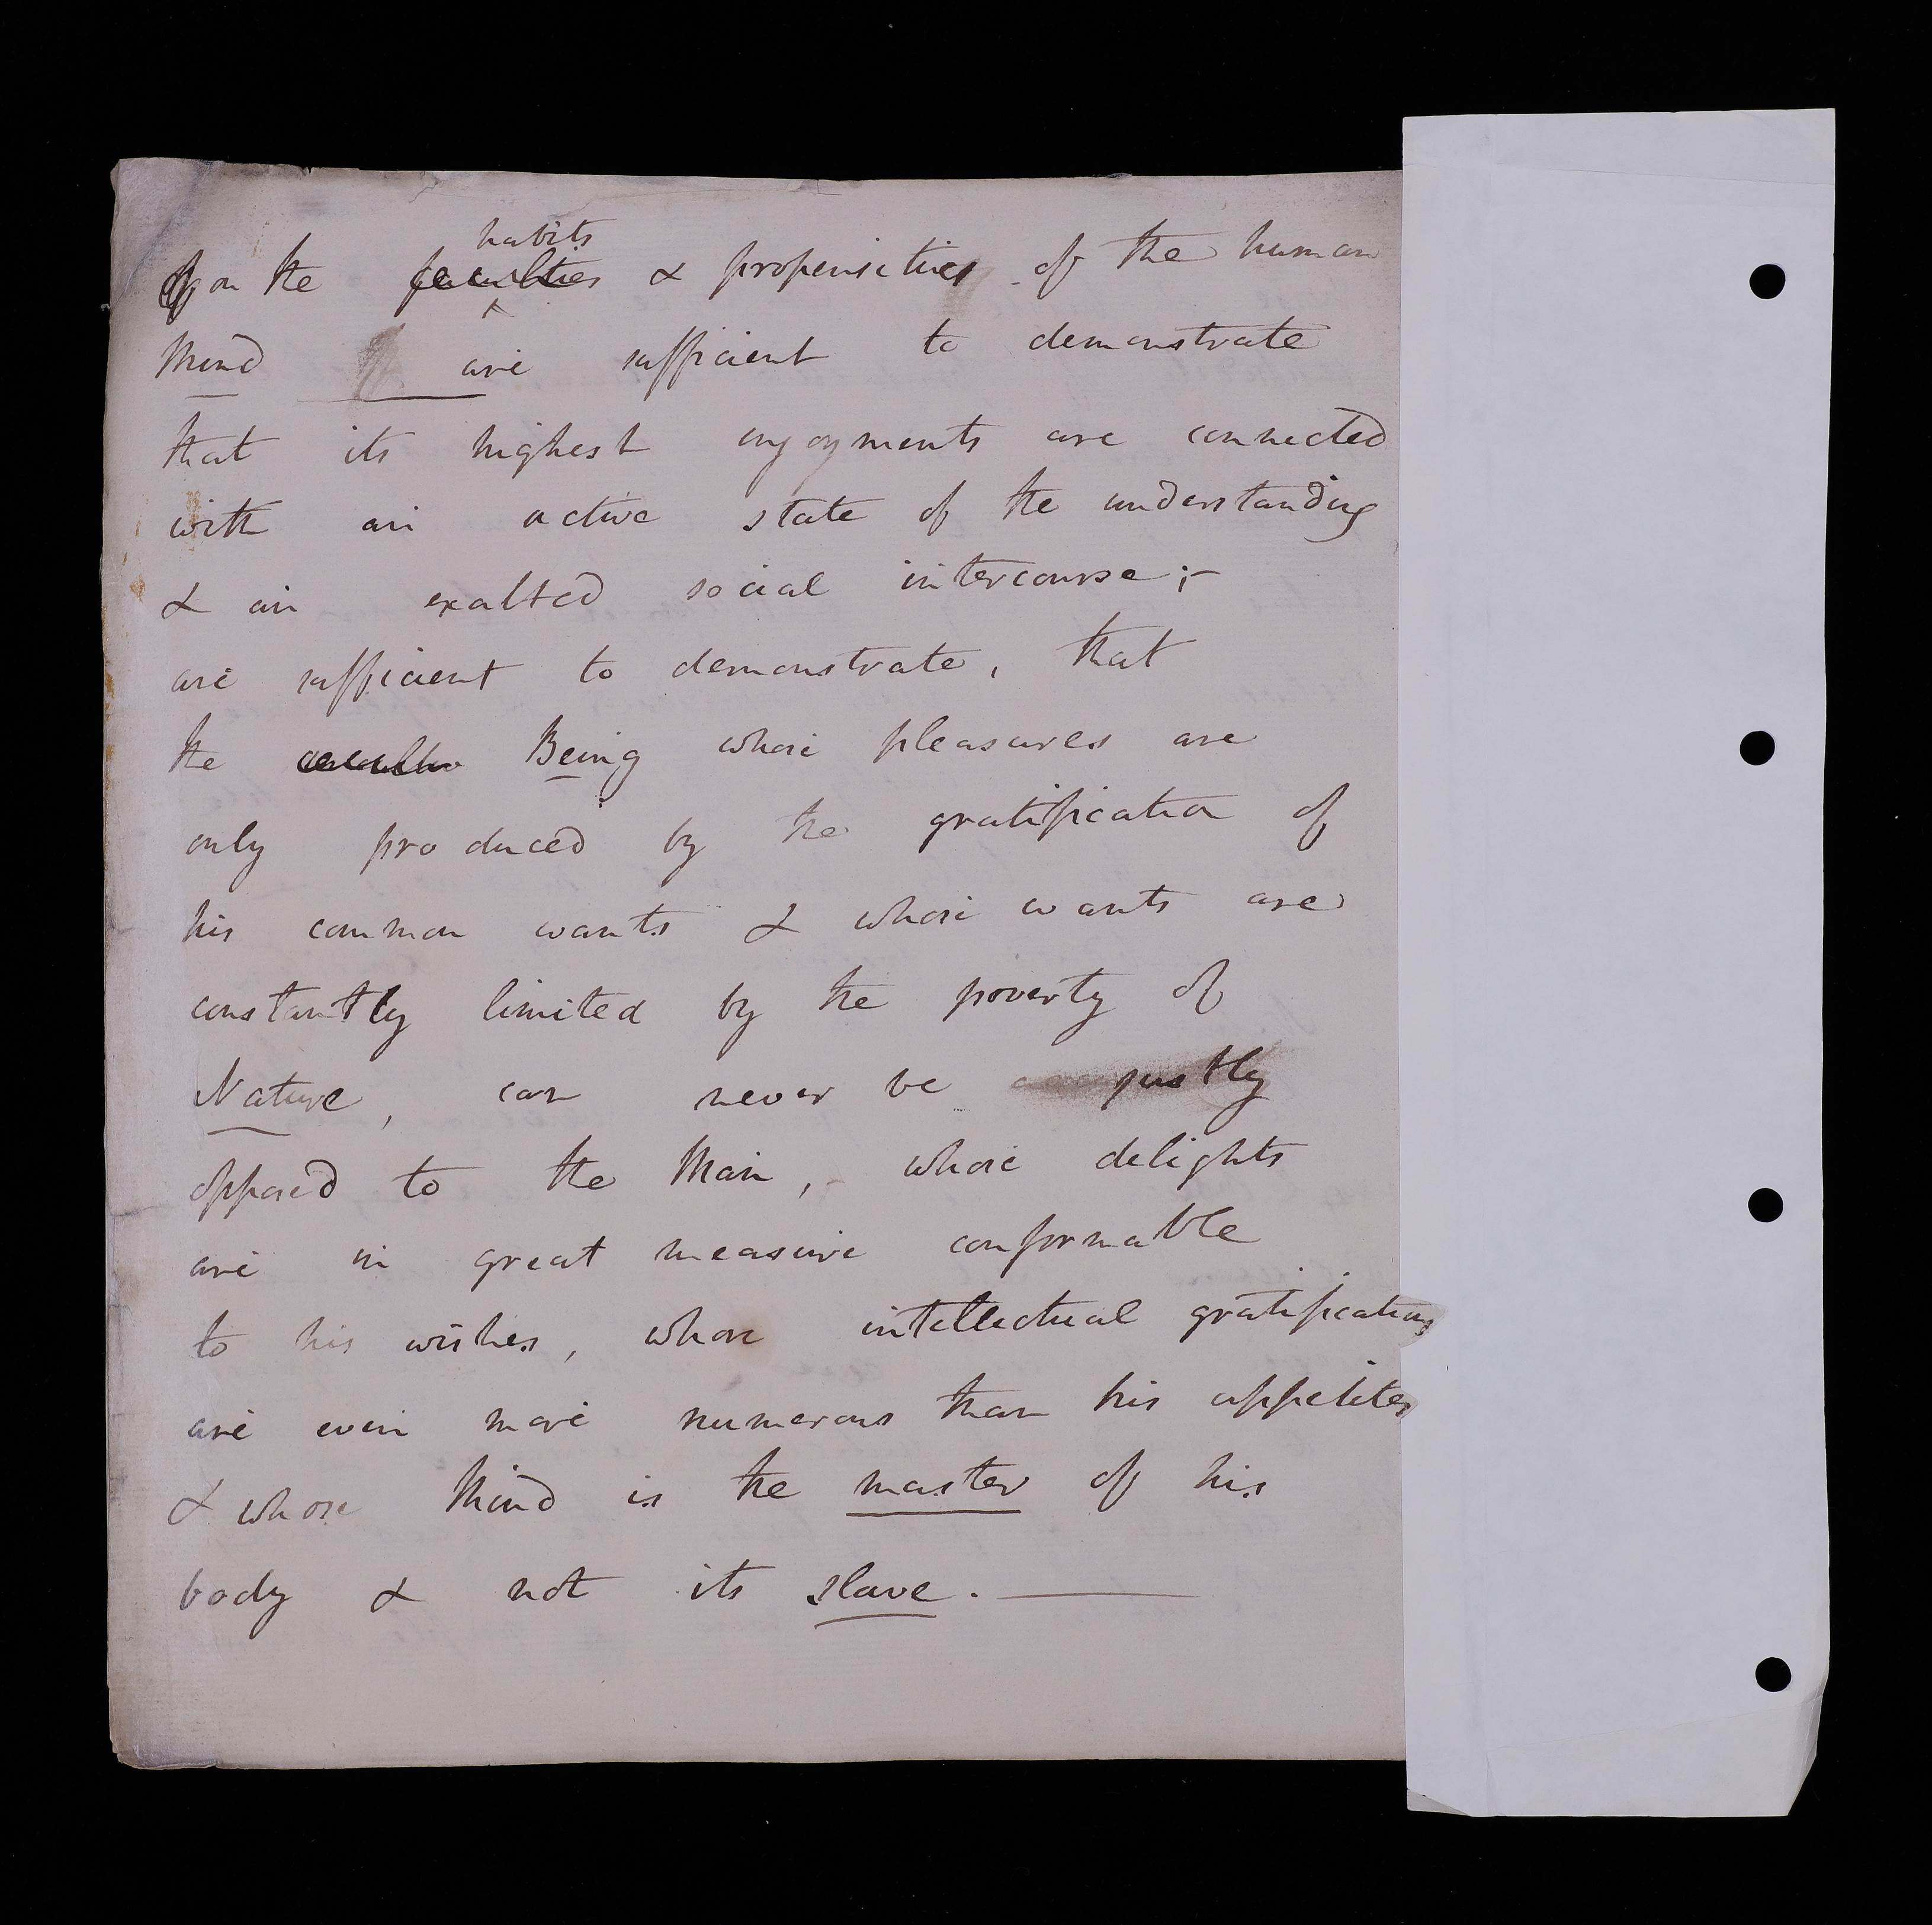 Upon the habits faculties & propensities of the human
Mind are sufficient to demonstrate
that its highest enjoyments are connected
with an active state of the understanding
& an exalted social intercourse;–
are sufficient to demonstrate, that
the Being whose pleasures are
only produced by the gratification of
his common wants & whose wants are
constantly limited by the poverty of
Nature, can never be justly
opposed to the Man, – whose delights
are in great measure conformable
to his wishes, whose intellectual gratifications
are even more numerous than his appetites
& whose Mind is the master of his
body & not its slave. —